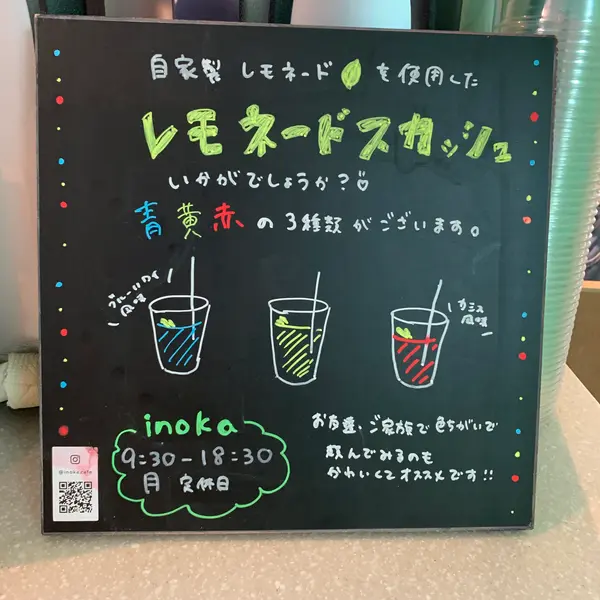 自家製 レモネード を使用した
レモネードスカッシュ
いかがでしょうか?♡
青 黄 赤 の 3種類 がございます。
ブルーハワイ
風味
カシス
風味
inoka
9:30-18:30
月 定休日
お友達、ご家族で色ちがいで
飲んでみるのも
かわいくてオススメです!!
@inokacafe